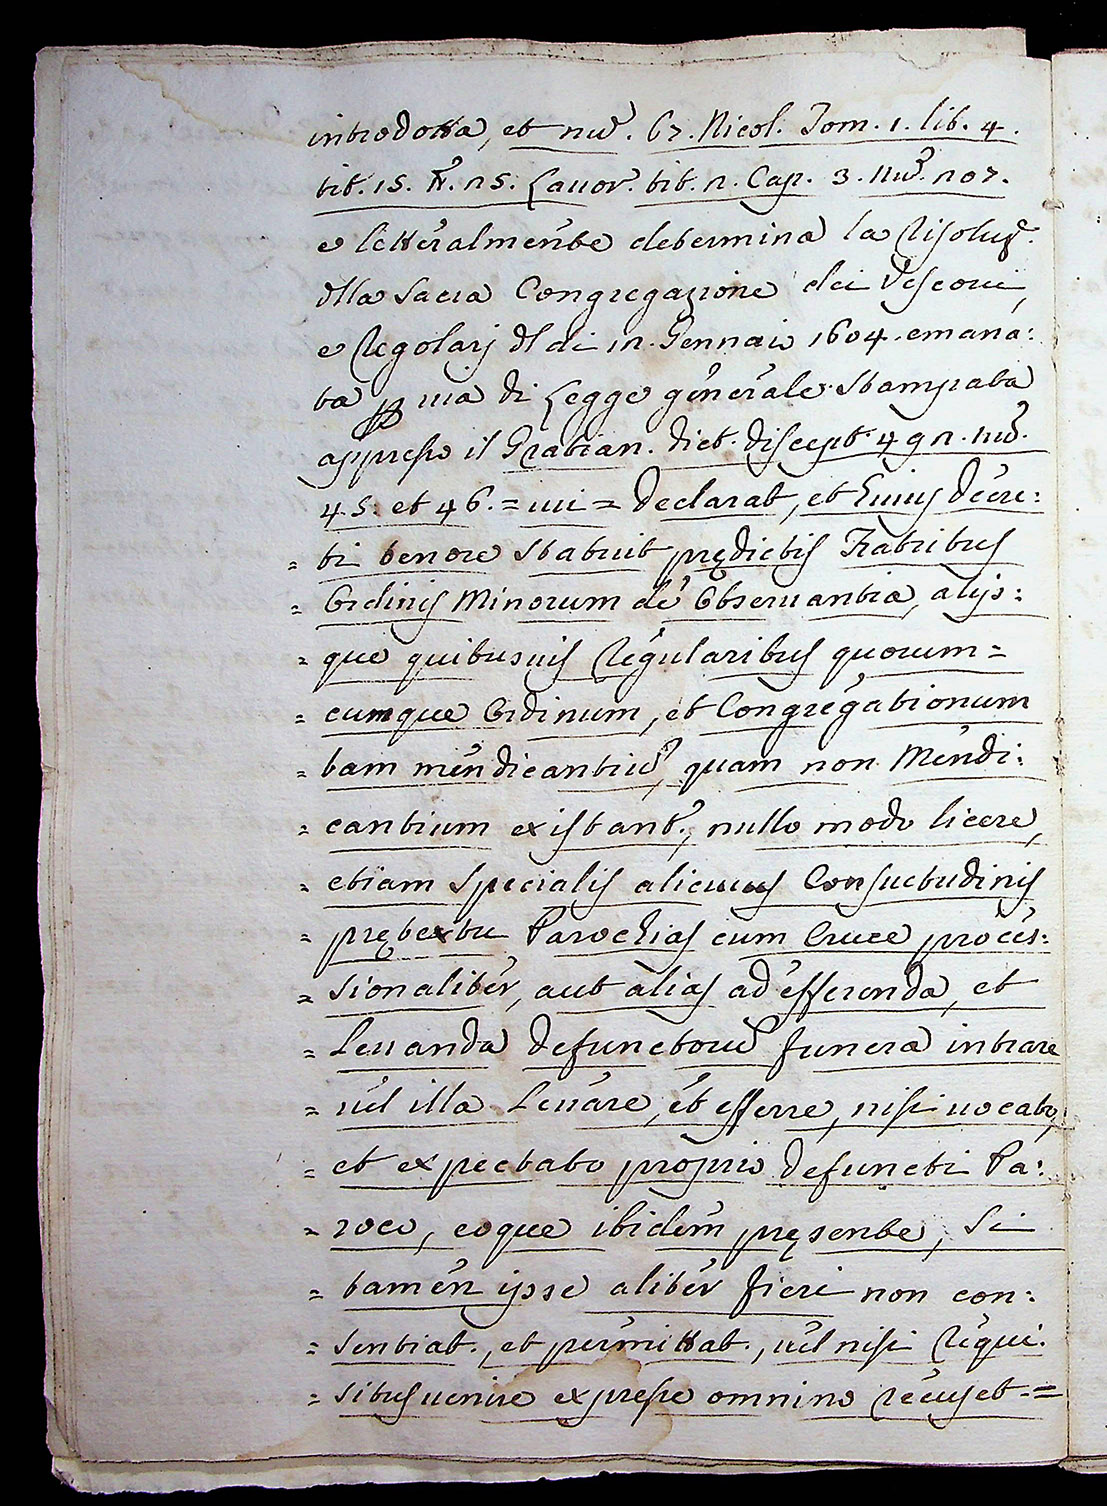 introdotta, et nũ. 67. Nicol. Tom. 1. lib. 4.
tit. 15. N. 25. Lauor. tit. 2. Cap. 3. nũ. 207.
e letteralmente determina la Risoluz.
dlla Sacra Congregazione dei Vescovi,
e Regolarj dl di 12. Gennaio 1604. emana:
ta p uia di Legge generale stampata
appresso il Gratian. dict. discept. 492. nũ.
45. et 46. = iui = Declarat, et huius decre:
= ti tenore statuit prędictis Fratribus
= Ordinis Minorum de Obseruantia, alijs:
= que quibusuis Regularibus quorum =
= cumque Ordinum, et Congregationum
= tam mendicantiũ, quam non Mendi:
= cantium existant., nullo modo licere,
= etiam specialis alicuius Consuetudinis
= prętextu Parochias cum Cruce proces:
= sionaliter, aut alias ad efferenda, et
= Leuanda defunctorũ funera intrare
= uel illa Leuare, et efferre, nisi uocato,
= et expectato proprio defuncti Pa:
= roco, eoque ibidem pręsente, si
= tamen ipse aliter fieri non con:
= sentiat., et permittat., uel nisi Requi:
= situs uenire expresse omnino recuset. =